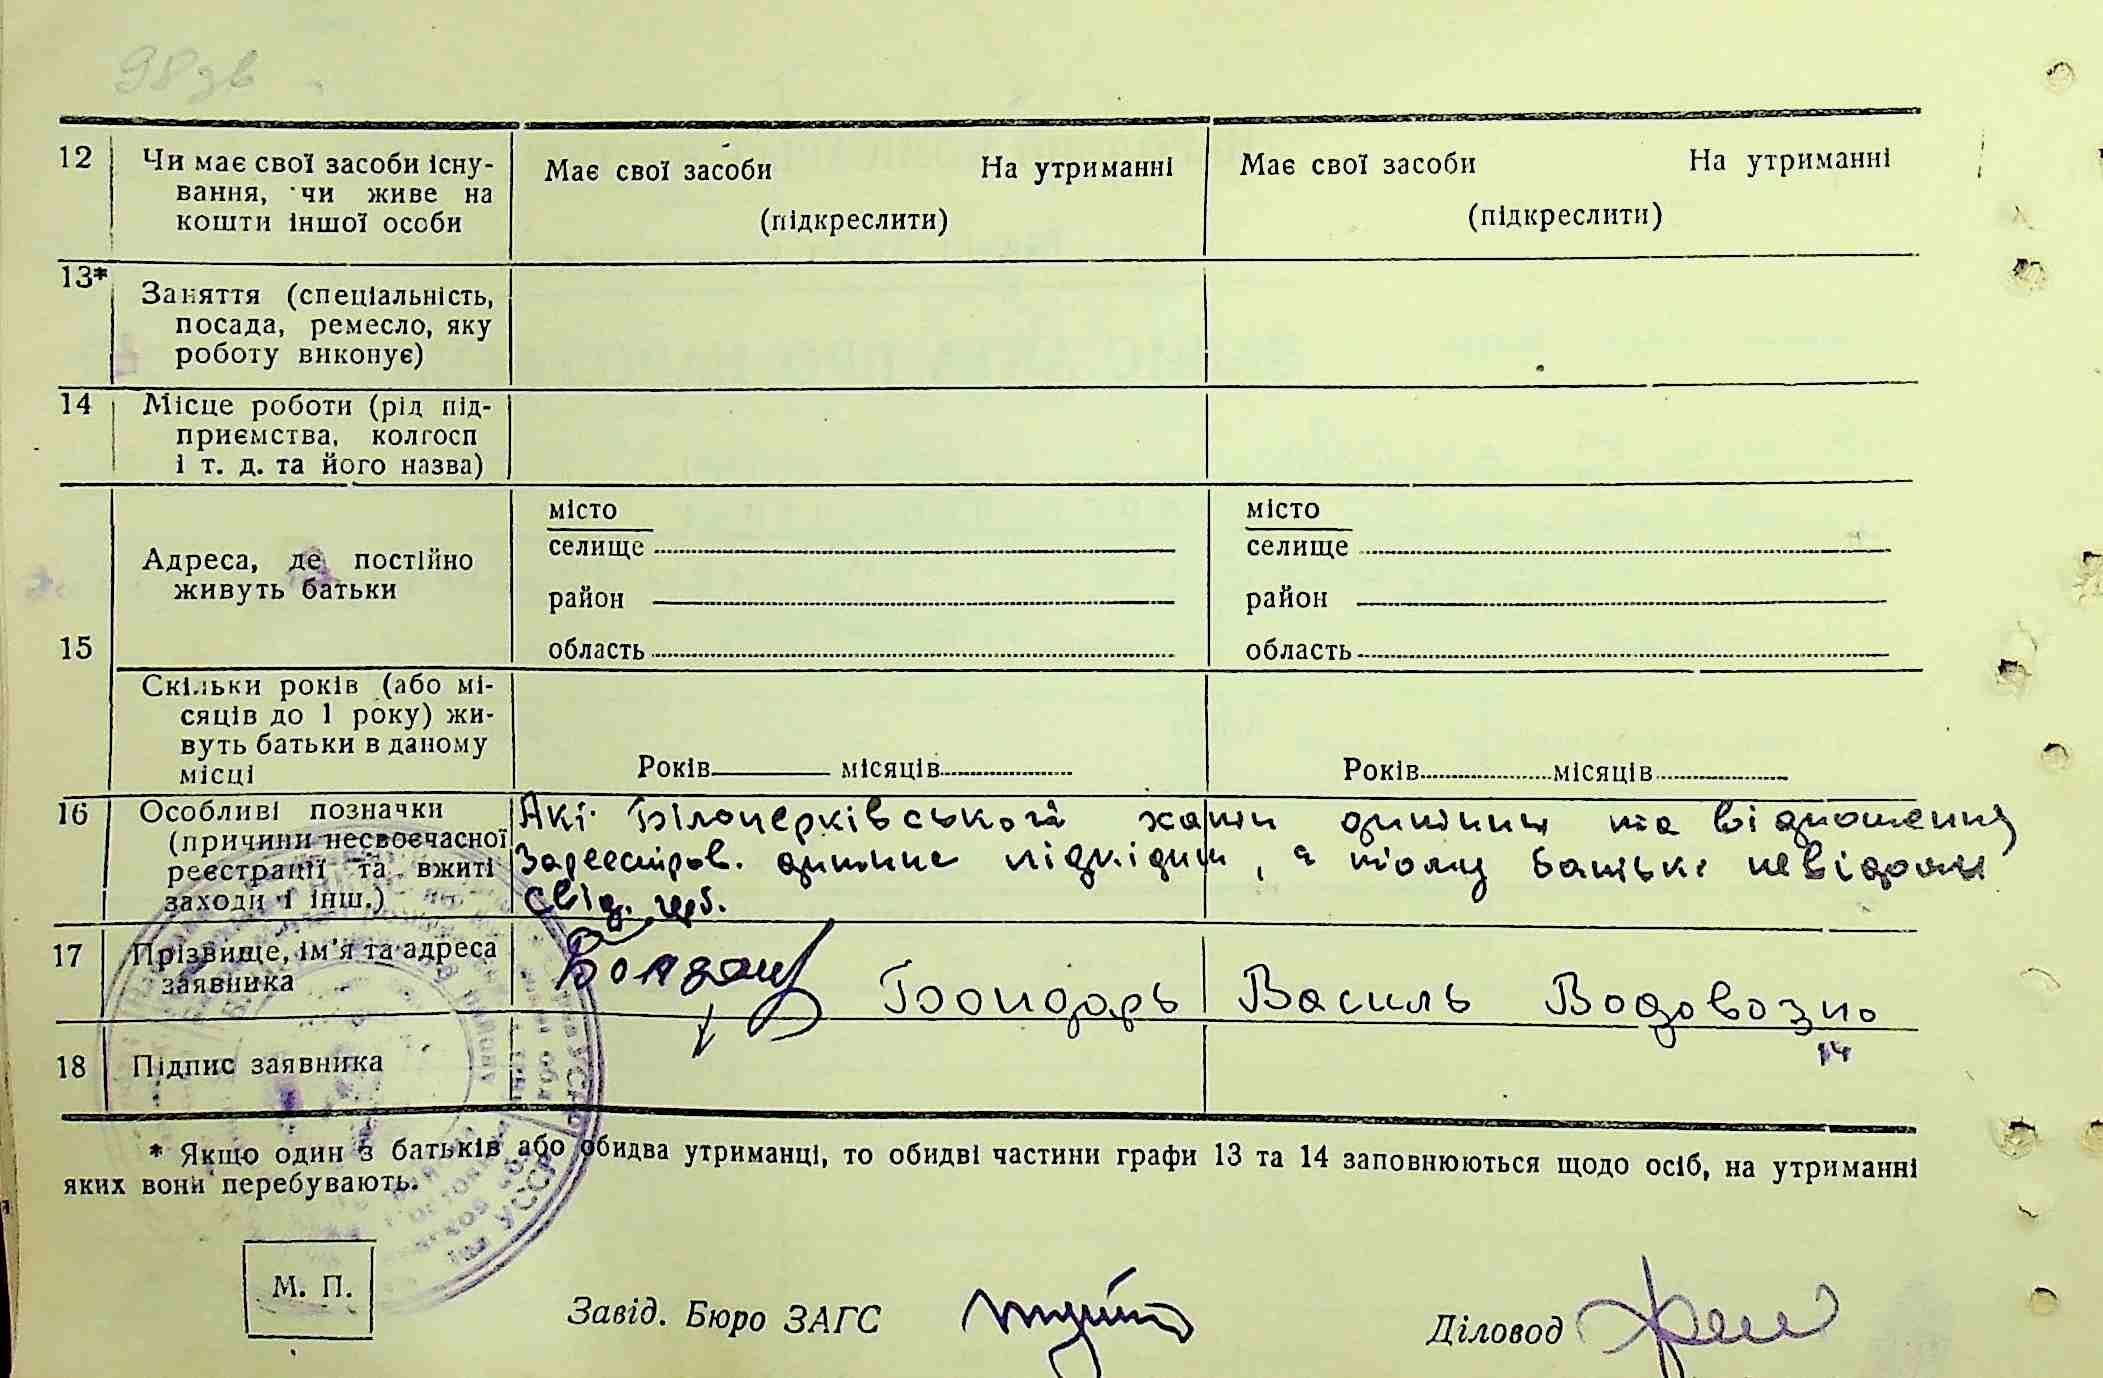 98зв
12 Чи має свої засоби існу-
вання, чи живе на
кошти іншої особи
Має свої засоби На утриманні
(підкреслити)
Має свої засоби На утриманні
(підкреслити)
13* Заняття (спеціальність,
посада, ремесло, яку
роботу виконує)
14 Місце роботи (рід під-
приємства, колгосп
і т. д. та його назва)
15
Адреса, де постійно
живуть батьки
місто
селище
район
область
місто
селище
район
область
Скільки років (або мі-
сяців до 1 року) жи-
вуть батьки в даному
місці
Років місяців
Років місяців
16 Особливі позначки
(причини несвоєчасної
реєстрації та вжиті
заходи і інш.)
Акі Білоцерківського хати дитини та відношення
Зареестров. дитине підкідиш, а тому батьки невідомі
Свід.
17 Прізвище, ім'я та адреса
заявника
Бондарь Василь Водовозно
14
18 Підпис заявника
* Якщо один з батьків або обидва утриманці, то обидві частини графи 13 та 14 заповнюються щодо осіб, на утриманні
яких вони перебувають.
М. П.
Завід. Бюро ЗАГС
Діловод